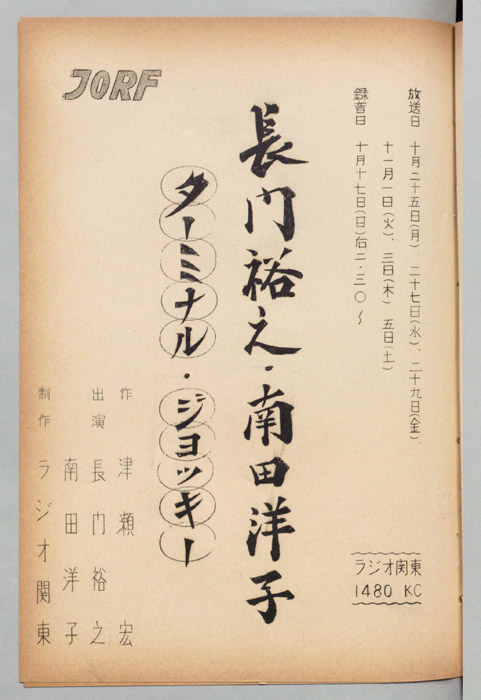 放送日 十月二十五日(月) 二十七日(水)、二十九日(金)、
十一月一日(火)、三日(木) 五日(土)
録音日 十月十七日(日)后二・三〇〜
ラジオ関東
1480 KC
長门裕之・南田洋子
ターミナル・ジョッキー
JORF
作 津瀬宏
出演 長门裕之
南田洋子
制作 ラジオ関東